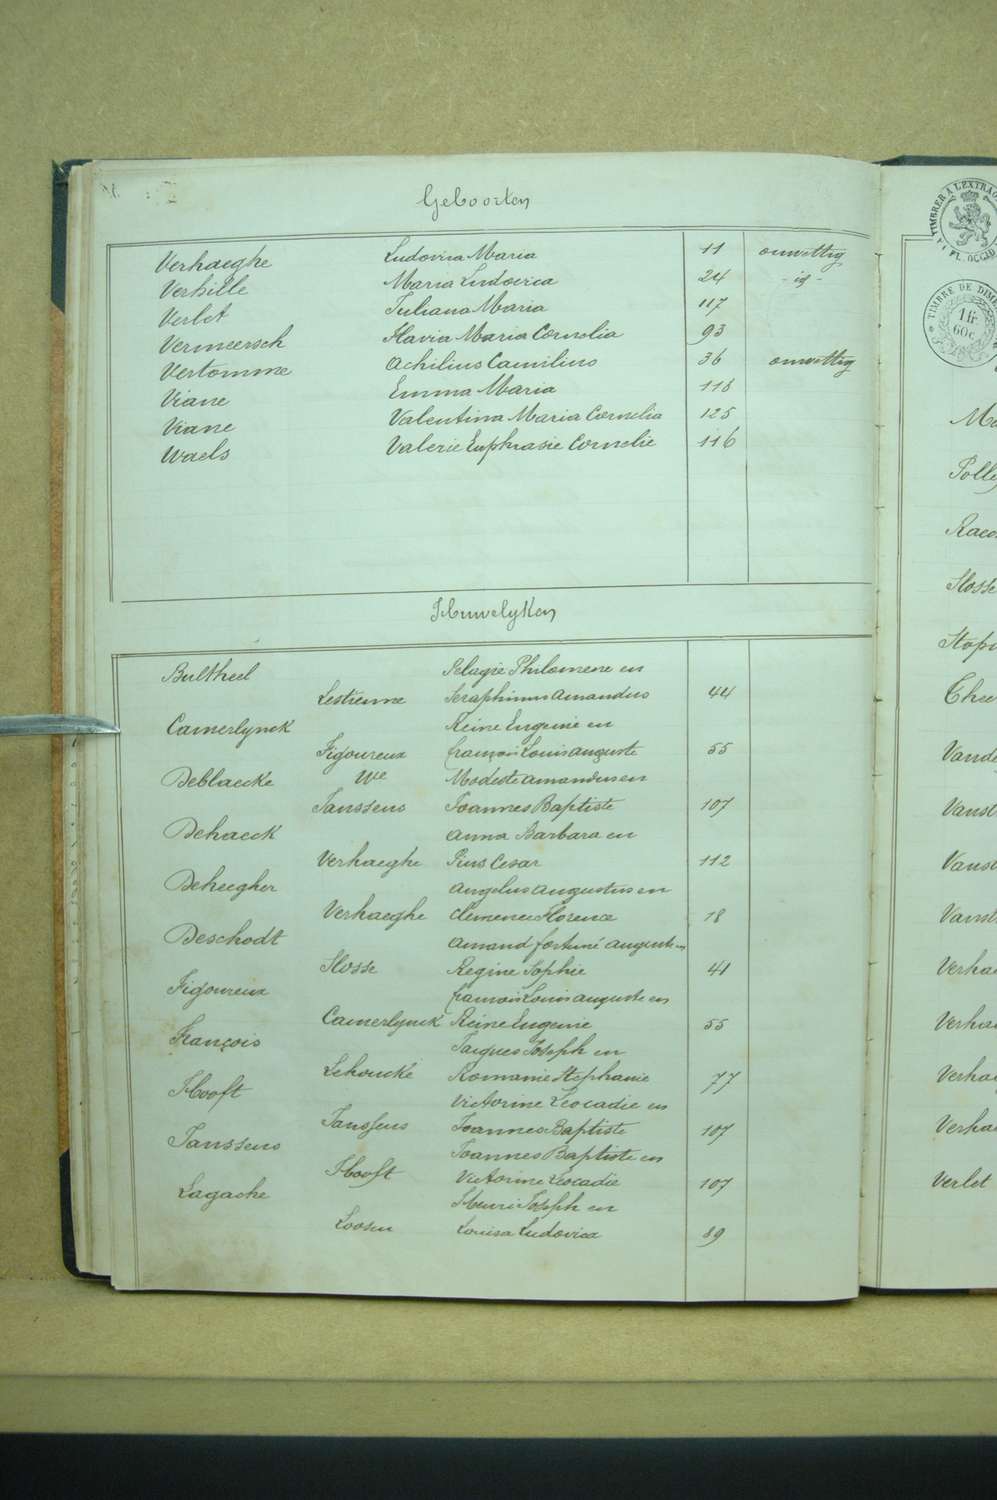 Geboorten
Verhaeghe Ludovica Maria 11 onwettig
Verhille Maria Ludovica 24 - id -
Verlet Juliana Maria 117
Vermeersch Flavia Maria Cornelia 93
Vertomme Achilius Camilius 36 onwettig
Viane Emma Maria 118
Viane Valentina Maria Cornelia 125
Waels Valerie Euphrasie Cornelie 116
Huwelyken
Bultheel Pelagie Philomene en
Lestienne Seraphinus Amandus 44
Camerlynck Reine Eugenie en
Figoureux françois Louis auguste 55
Deblaecke We Modeste amandus en
Janssens Joannes Baptiste 107
Dehaeck Anna Barbara en
Verhaeghe Pius Cesar 112
Deheegher Angelus augustus en
Verhaeghe Clemence Florence 18
Deschodt Amand fortuné auguste en
Slosse Regine Sophie 41
Figoureux françois Louis auguste en
Camerlynck Reine Eugenie 55
François Jacques Joseph en
Lehoucke Romanie Stephanie 77
Hooft Victorine Leocadie en
Janssens Joannes Baptiste 107
Janssens Joannes Baptiste en
Hooft Victorine Leocadie 107
Lagache Henri Joseph en
Loosen Louisa Ludovica 89
TIMBRER À L'EXTRAO
FL. OCCID
TIMBRE DE DIME
1 fr
60 c.
Ma
Polle
Raeo
Slosse
Stopi
Vande
Vanst
Verha
Verha
Verha
Verha
Verlet